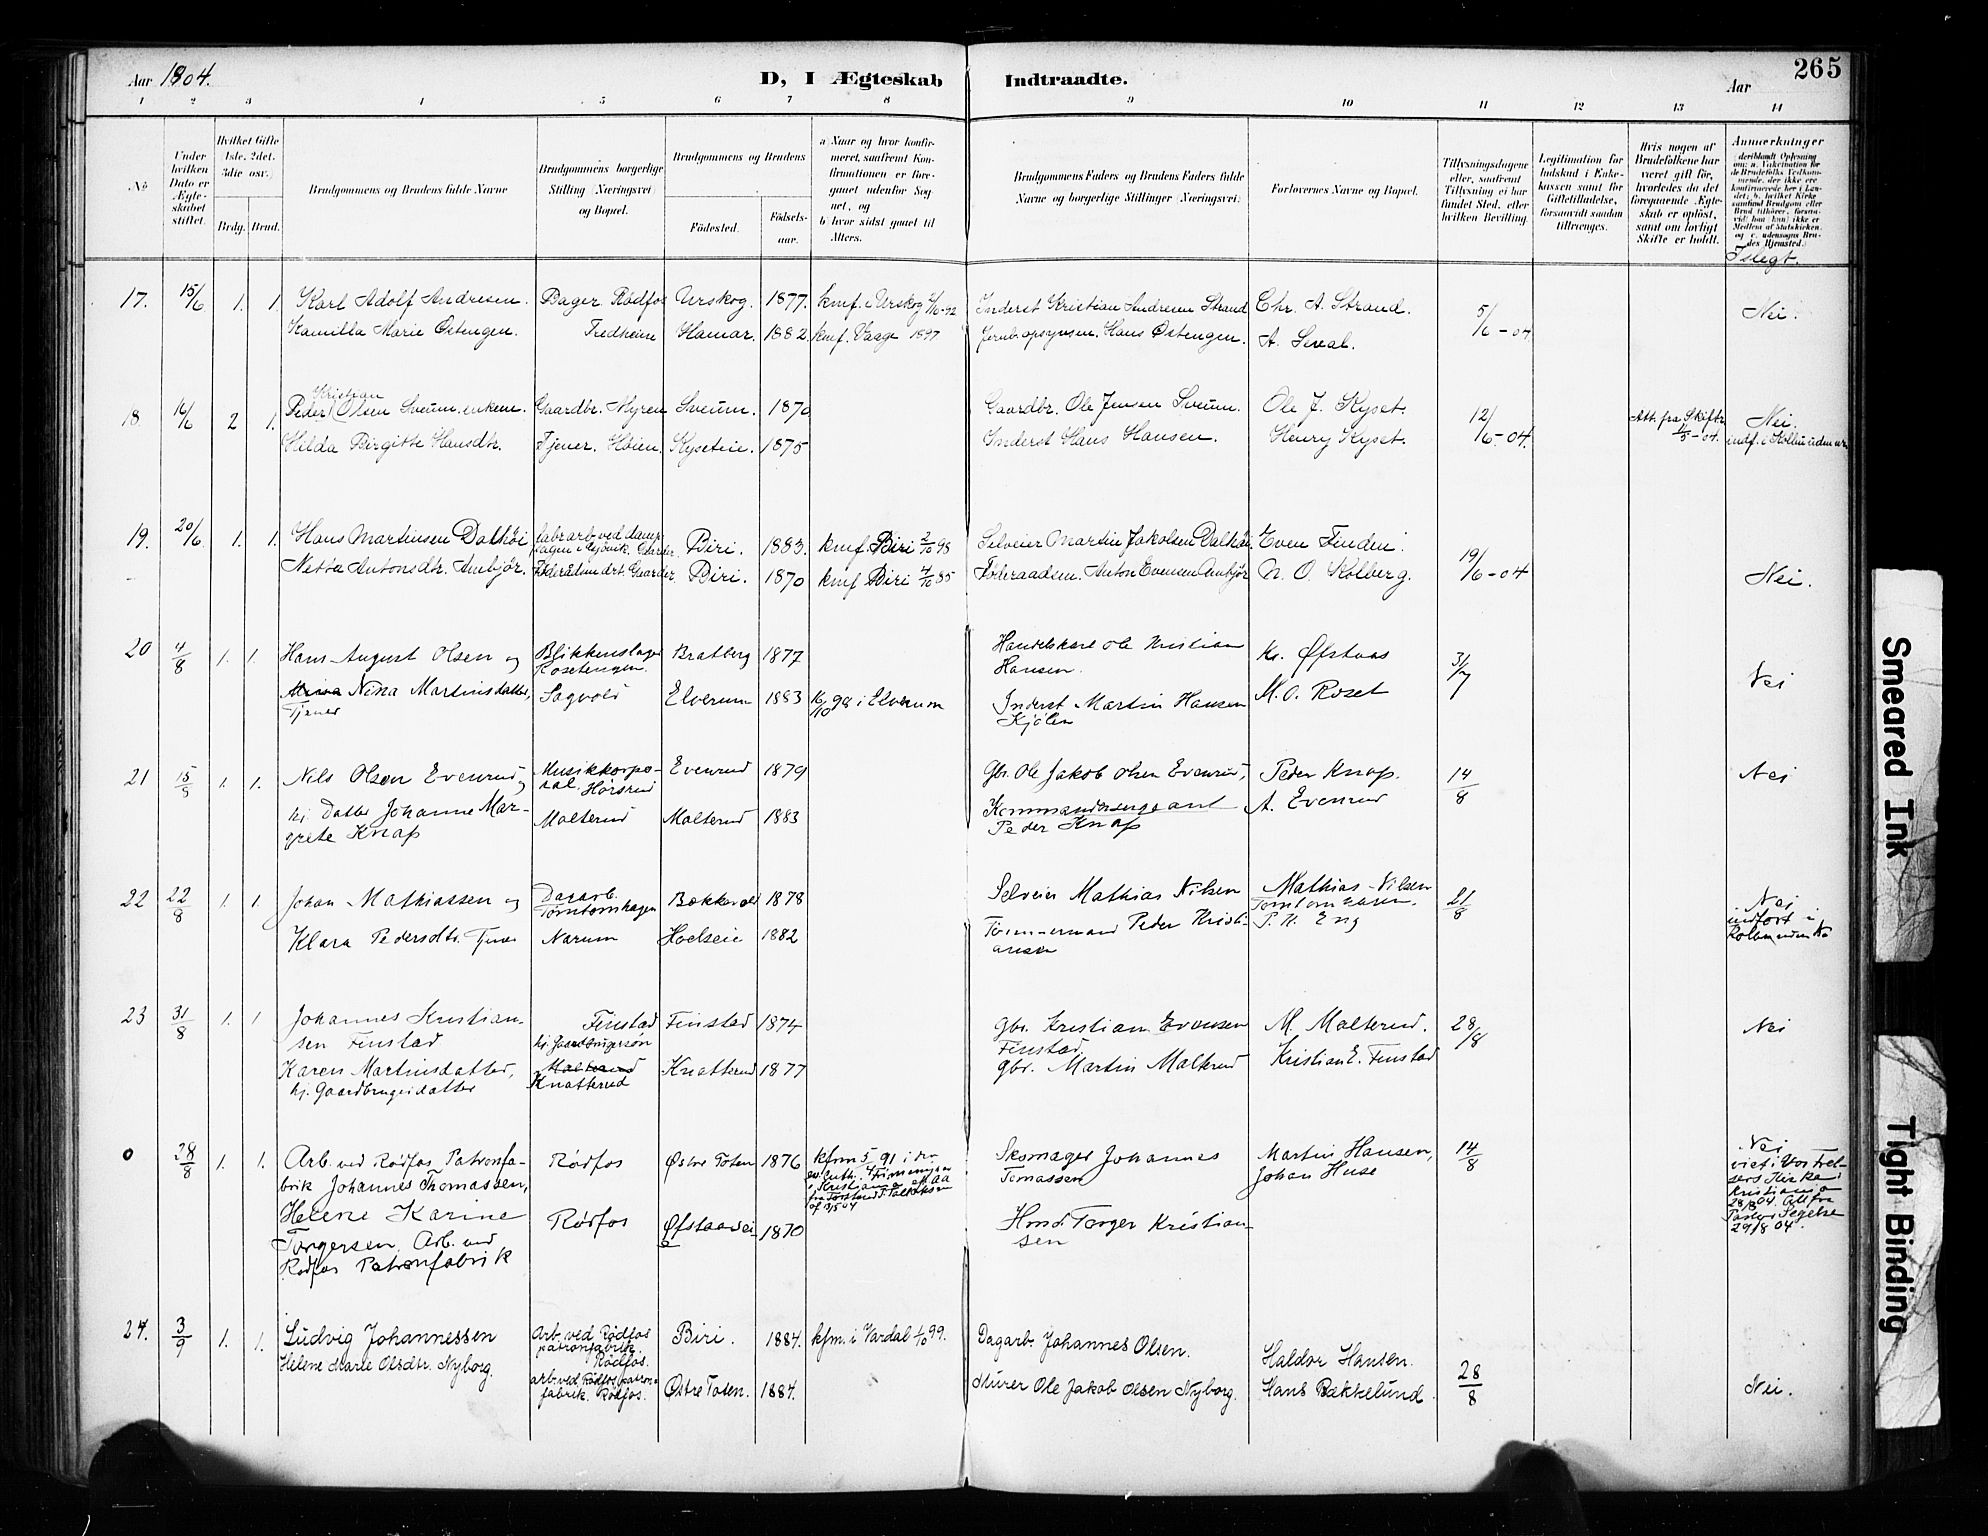 Aar 1904.
D, I Ægteskab Indtraadte.
Aar
265
1 2 3 4 5 6 7 8 9 10 11 12 13 14
No
Under hvilken Dato er Ægteskabet stiftet.
Hvilket Gifte 1ste, 2det, 3die osv.
Brdg. Brud.
Brudgommens og Brudens fulde Navne
Brudgommens borgerlige Stilling (Næringsvei) og Bopæl.
Brudgommens og Brudens
Fødested.
Fødselsaar.
a) Naar og hvor konfirmeret, saafremt Konfirmationen er foregaaet udenfor Sognet, og
b) hvor sidst gaaet til Alters.
Brudgommens Faders og Brudens Faders fulde Navne og borgerlige Stillinger (Næringsvei).
Forlovernes Navne og Bopæl.
Tillysningsdagene eller, saafremt Tillysning ei har fundet Sted, efter hvilken Bevilling.
Legitimation for Indskud i Enkekassen samt for Giftetilladelse, forsaavidt saadan tiltrænges.
Hvis nogen af Brudefolkene har været gift før, hvorledes da det foregaaende Ægteskab er opløst, samt om lovligt Skifte er holdt.
Anmerkninger
Islegt.
17. 15/6 1. 1. Karl Adolf Andresen. Bager Rødfos Urskog. 1877. kmf. Urskog Inderst Kristian Andresen Strand Chr. A. Strand. 5/6-04 Nei.
Kamilla Marie Østengen. Fredheim Hamar. 1882. kmf. Vaage 1897 Jernb.opsynsm. Hans Østengen. A. Seval.
18. 16/6 2 1. Peder Kristian Olsen Sveum. enkem. Gaardbr. Myren Sveum. 1870 Gaardbr. Ole Jensen Sveum. Ole J. Kyset. 12/6-04. Att. fra Skiftr. 11/5-04. Nei.
Hilda Birgitte Hansdtr. Tjener. Høien. Kyseteie. 1875 Inderst Hans Hansen. Henry Kyset. indf. i Kolbu uden nr
19. 20/6 1. 1. Hans Martinsen Dalhøi Biri. 1883. kmf. Biri 2/10 98 Selveier Martin Jakobsen Dalhøi Even Finden. 19/6-04 Nei.
Netta Antonsdtr. Ambjør. Gaarder. Biri. 1870 kmf Biri 4/10 85 Føderaadsm. Anton Evensen Ambjør N. O. Kolberg.
20 4/8 1. 1. Hans August Olsen og Blikkenslager Rosetengen. Bratberg 1877 Handelskarl Ole Kristian Hansen. Kr. Øfstaas 31/7 Nei
Nina Martinsdatter, Tjener Sagvold Elverum 1883 16/10 98 i Elverum Inderst Martin Hansen Kjølen M. O. Roset
21 15/8 1. 1. Nils Olsen Evenrud, Musikkorporal, Hørsrud Evenrud 1879 Gbr. Ole Jakob Olsen Evenrud, Peder Knap. 14/8 Nei
hj. Datter Johanne Margrete Knap Malterud Malterud 1883 Kommandersergeant Peder Knap A. Evenrud
22 22/8 1. 1. Johan Mathiassen og Dagarb. Tømtomhagen Bækkevold 1878 Selveier Mathias Nilsen Mathias Nilsen 21/8 Nei
Klara Pedersdtr. Tjener Narum Hoelseie 1882 Tømmermand Peder Kristiansen P. K. Eng indført i Kolbu uden No
23 31/8 1. 1 Johannes Kristiansen Finstad Finstad hj. Gaardbrugersøn Finstad 1874 Gbr. Kristian Evensen Finstad M. Malterud. 28/8 Nei
Karen Martinsdatter, hj. Gaardbrugerdatter Malterud Knatterud Knatterud 1877 Gbr. Martin Malterud Kristian E. Finstad
0 28/8 1. 1. Arb. ved Rødfos Patronfabrik Johannes Thomassen, Rødfos Østre Toten 1876 kfrm 5/4 91 i den ev. luth. Frimenighed i Kristiania Skomager Johannes Tomassen Martin Hansen, Johan Huse 14/8 Nei
viet i Vor Frelsers Kirke i Kristiania 28/8 04. Att fra Pastor Segelcke 29/8 04.
Helene Karine Torgersen. Arb. ved Rødfos Patronfabrik Rødfos Øfstaaseie 1870 Hmd. Torger Kristiansen
24. 3/9 1. 1. Ludvig Johannessen Arb. ved Rødfos patronfabrik. Rødfos. Biri. 1884. kfm. i Vardal 1/10 99. Dagarb. Johannes Olsen. Haldor Hansen. 28/8 Nei.
Helene Marie Olsdtr. Nyborg. arb. ved Rødfos patronfabrik. Rødfos. Østre Toten. 1884. Murer Ole Jakob Olsen Nyborg. Hans Bakkelund.
Smeared Ink
Tight Binding